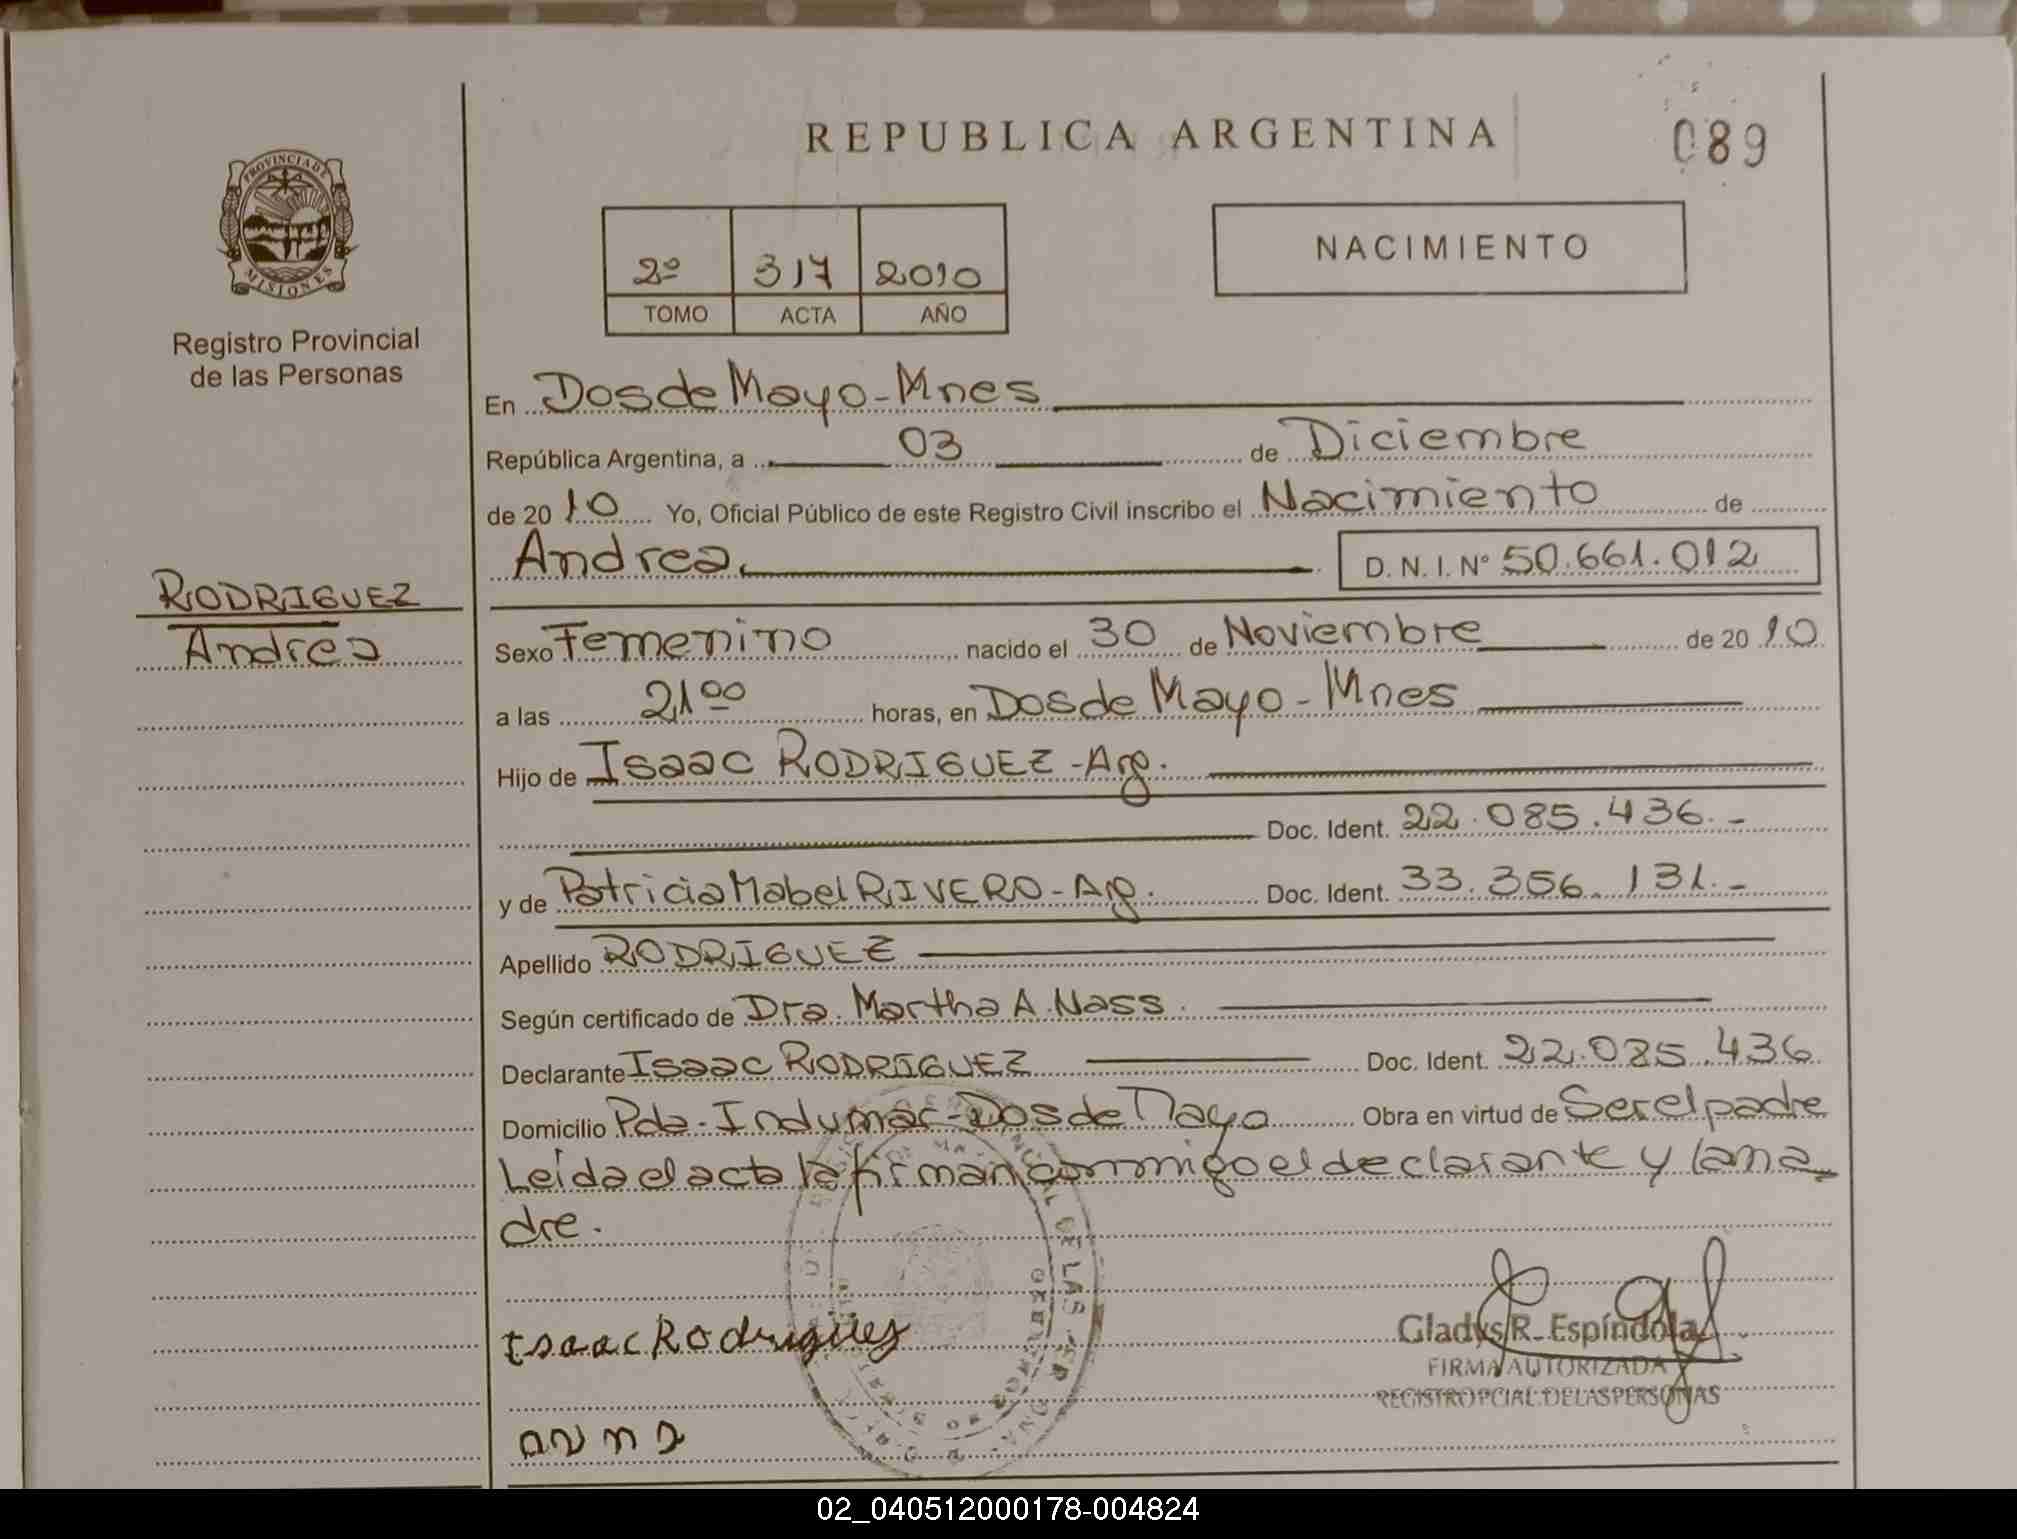 REPUBLICA ARGENTINA
089
PROVINCIA DE
MISIONES
Registro Provincial
de las Personas
2º 317 2010
TOMO ACTA AÑO
NACIMIENTO
En Dos de Mayo - Mnes
República Argentina, a 03 de Diciembre
de 2010 Yo, Oficial Público de este Registro Civil inscribo el Nacimiento de
Andrea D. N. I. Nº 50.661.012
RODRIGUEZ
Andrea
Sexo Femenino nacido el 30 de Noviembre de 2010
a las 21 00 horas, en Dos de Mayo - Mnes
Hijo de Isaac RODRIGUEZ - Arg.
Doc. Ident. 22.085.436.-
y de Patricia Mabel RIVERO - Arg. Doc. Ident. 33.356.131.-
Apellido RODRIGUEZ
Según certificado de Dra. Martha A. Nass.
Declarante Isaac RODRIGUEZ Doc. Ident. 22.085.436
Domicilio Pda. Indumar - Dos de Mayo Obra en virtud de Ser el padre
Leída el acta la firman conmigo el declarante y la ma
dre.
Isaac Rodrigues
Gladys R. Espíndola
FIRMA AUTORIZADA
REGISTRO PCIAL. DE LAS PERSONAS
02_040512000178-004824